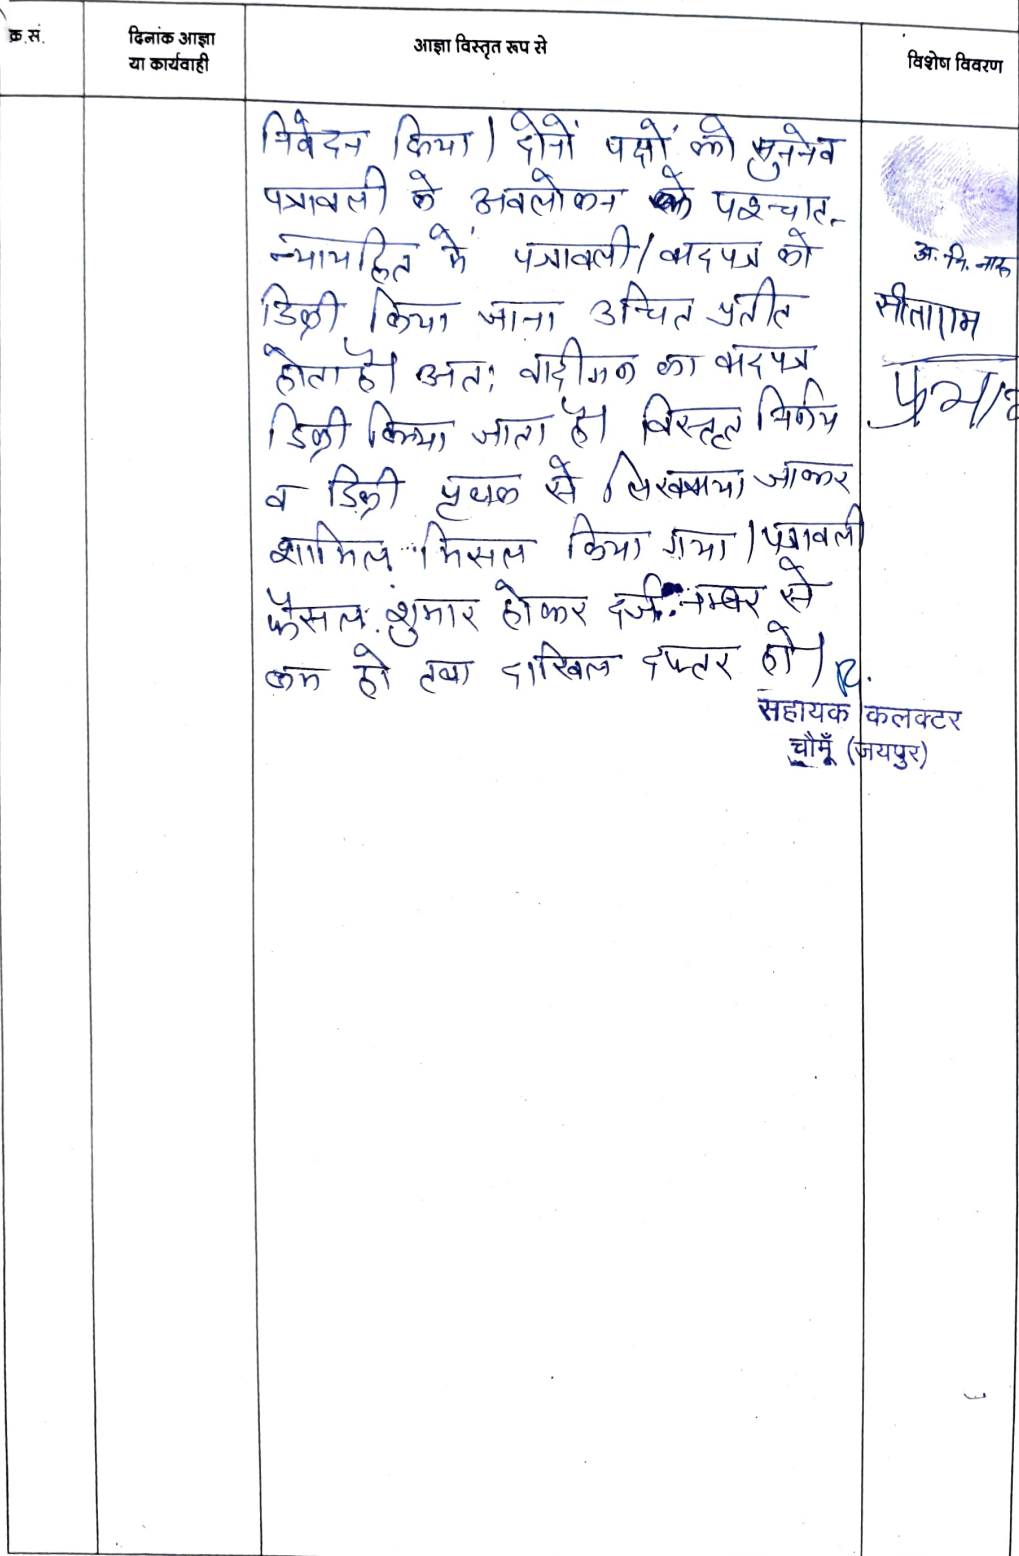 क्र.सं.
दिनांक आज्ञा
या कार्यवाही
आज्ञा विस्तृत रूप से
विशेष विवरण
निवेदन किया। दोनों पक्षों को सुनने व
पत्रावली के अवलोकन के पश्चात
न्यायहित में पत्रावली/वादपत्र को
डिक्री किया जाना उचित प्रतीत
होता है। अतः वादीगण का वादपत्र
डिक्री किया जाता है। विस्तृत निर्णय
व डिक्री पृथक से लिखवाया जाकर
शामिल मिसल किया गया। पत्रावली
फैसल शुमार होकर दर्ज नम्बर से
कम हो तथा दाखिल दफ्तर हो।
सहायक कलक्टर
चौमूँ (जयपुर)
अ. नि.
सीताराम